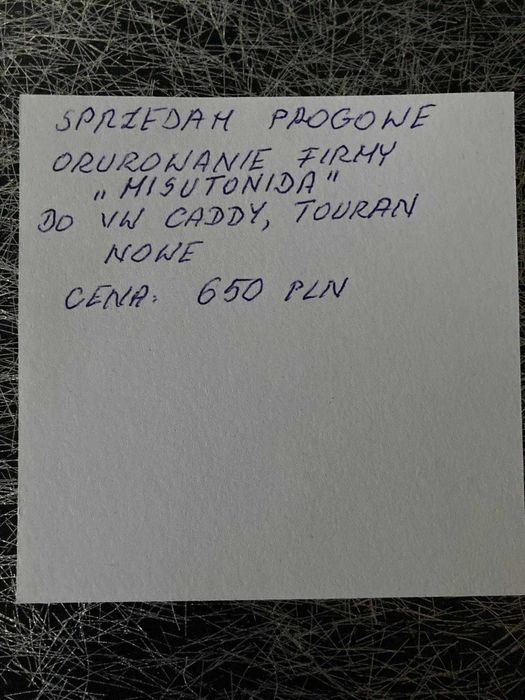 SPRZEDAM PROGOWE
ORUROWANIE FIRMY
„MISUTONIDA"
DO VW CADDY, TOURAN
NOWE
CENA: 650 PLN